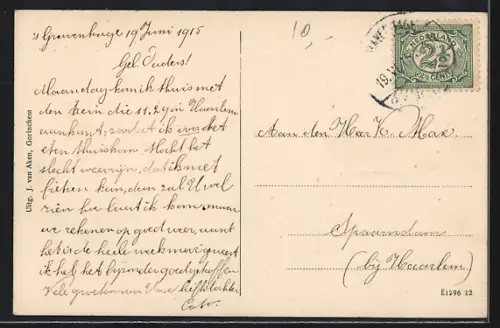 's Gravenhage 19 Juni 1915
10,-
Gel. Ouders!
Maandag kom ik thuis met
den trein die 11.29 in Haarlem
aankomt, zoodat ik voor het
eten thuis kom. Mocht het
slecht weer zijn, dat ik niet
fietsen kan, dan zal U wel
zien hoe laat ik kom, maar
we rekenen op goed weer, want
het is de heele week mooi geweest
ik heb het bijzonder goed getroffen
Vele groeten van Uwe liefh. dochter
Cato.
Uitg. J. van Aken, Gorinchem
NEDERLAND
2½
CENT
Aan den Heer K. Max
Spaarndam
(bij Haarlem)
E1296 12